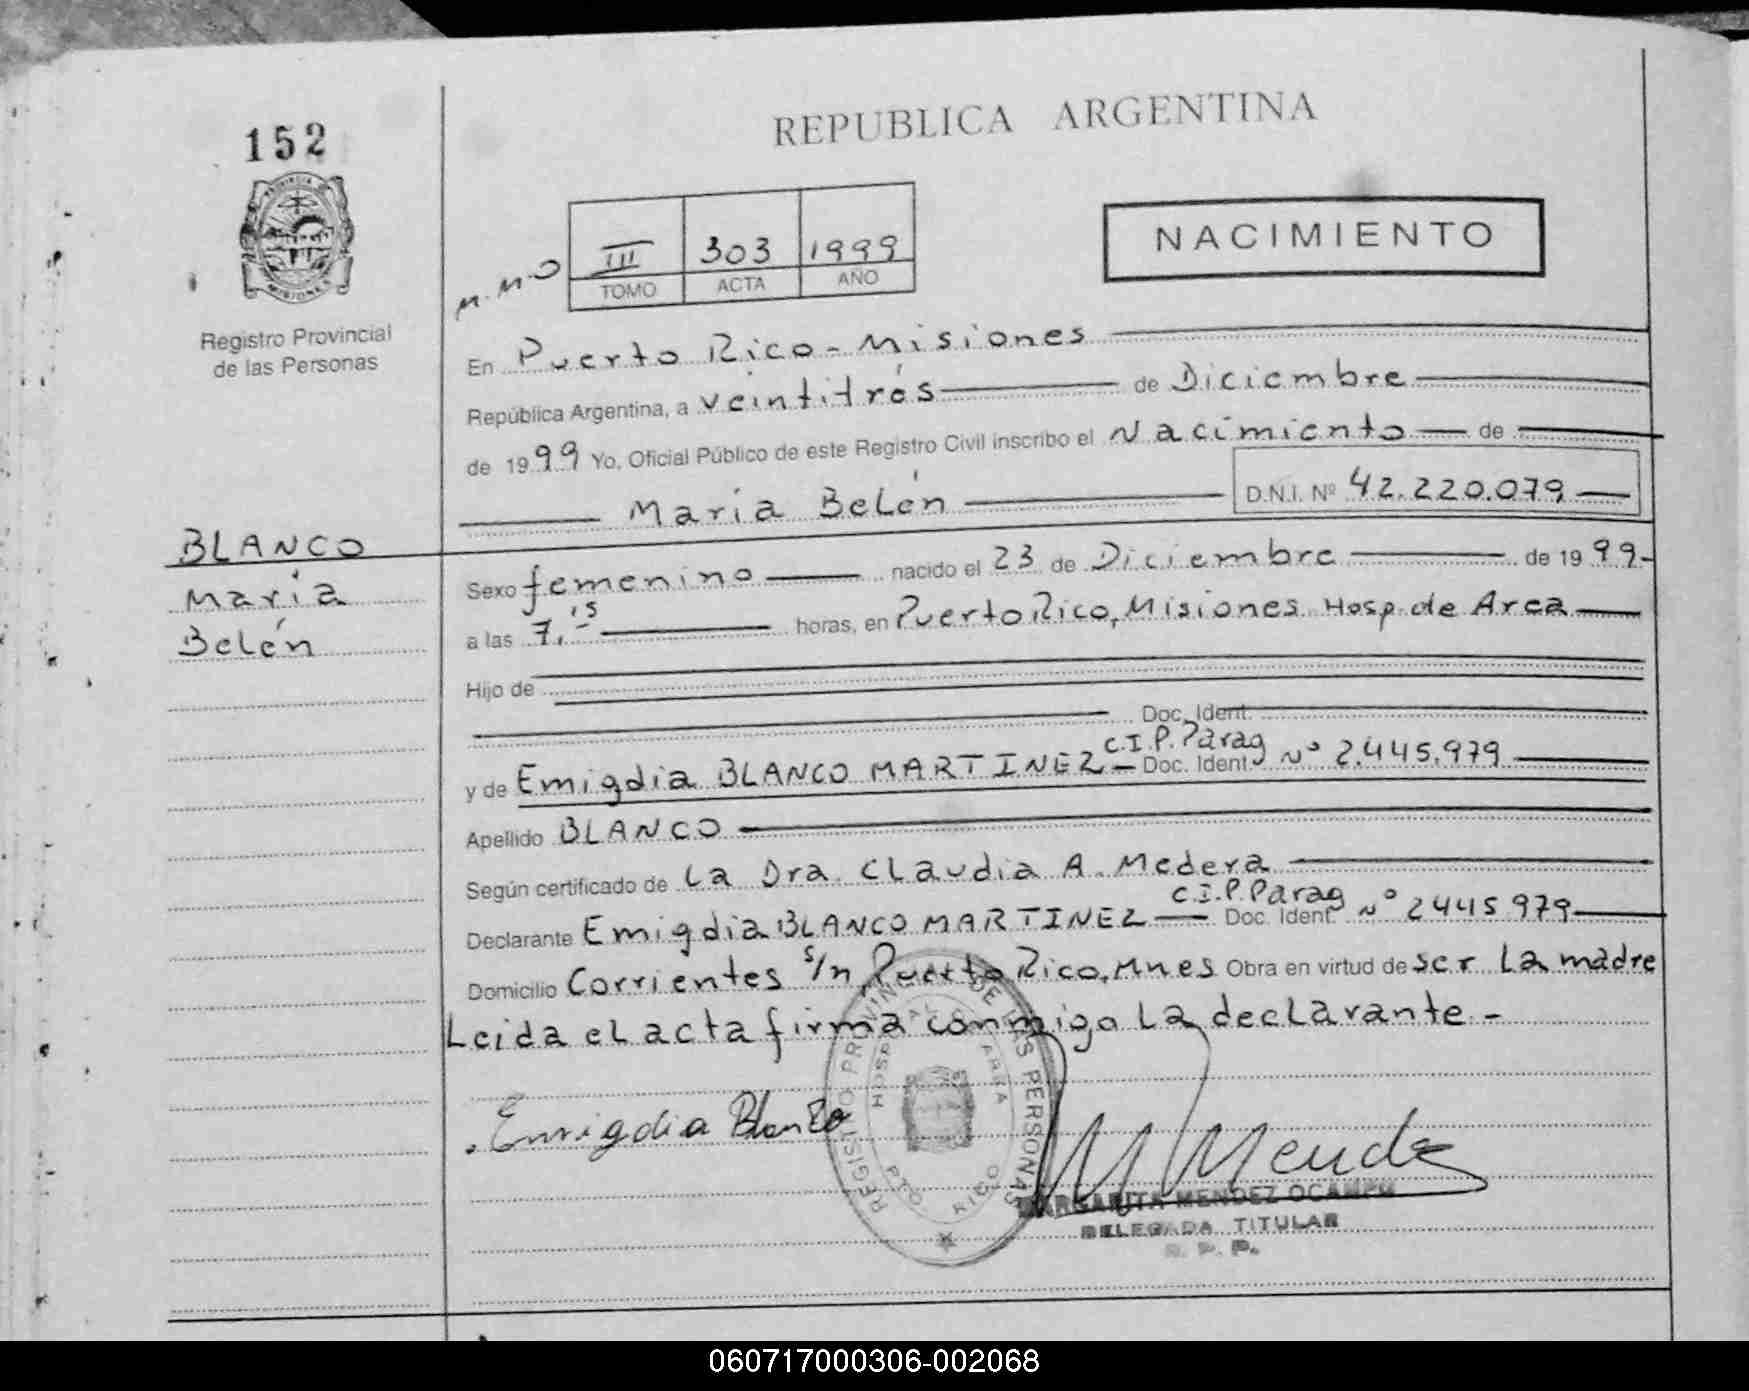 152
REPUBLICA ARGENTINA
PROVINCIA DE
MISIONES
Registro Provincial
de las Personas
M.M.O
III 303 1999
TOMO ACTA AÑO
NACIMIENTO
En Puerto Rico - Misiones
República Argentina, a veintitrés de Diciembre
de 1999 Yo, Oficial Público de este Registro Civil inscribo el Nacimiento de
María Belén D.N.I. Nº 42.220.079
BLANCO
María
Belén
Sexo femenino nacido el 23 de Diciembre de 1999-
a las 7,15 horas, en Puerto Rico, Misiones Hosp. de Area
Hijo de
Doc. Ident.
y de Emigdia BLANCO MARTINEZ C.I.P. Parag Doc. Ident. Nº 2.445.979
Apellido BLANCO
Según certificado de La Dra. Claudia A. Medera
Declarante Emigdia BLANCO MARTINEZ C.I.P. Parag Doc. Ident. Nº 2445979
Domicilio Corrientes s/n, Puerto Rico, Mnes Obra en virtud de ser La madre
Leida el acta firma conmigo La declarante.-
Emigdia Blanco
REGISTRO PROVINCIAL DE LAS PERSONAS
HOSPITAL DE AREA
PTO. RICO
M Mendez
MARGARITA MENDEZ OCAMPO
DELEGADA TITULAR
R. P. P.
060717000306-002068